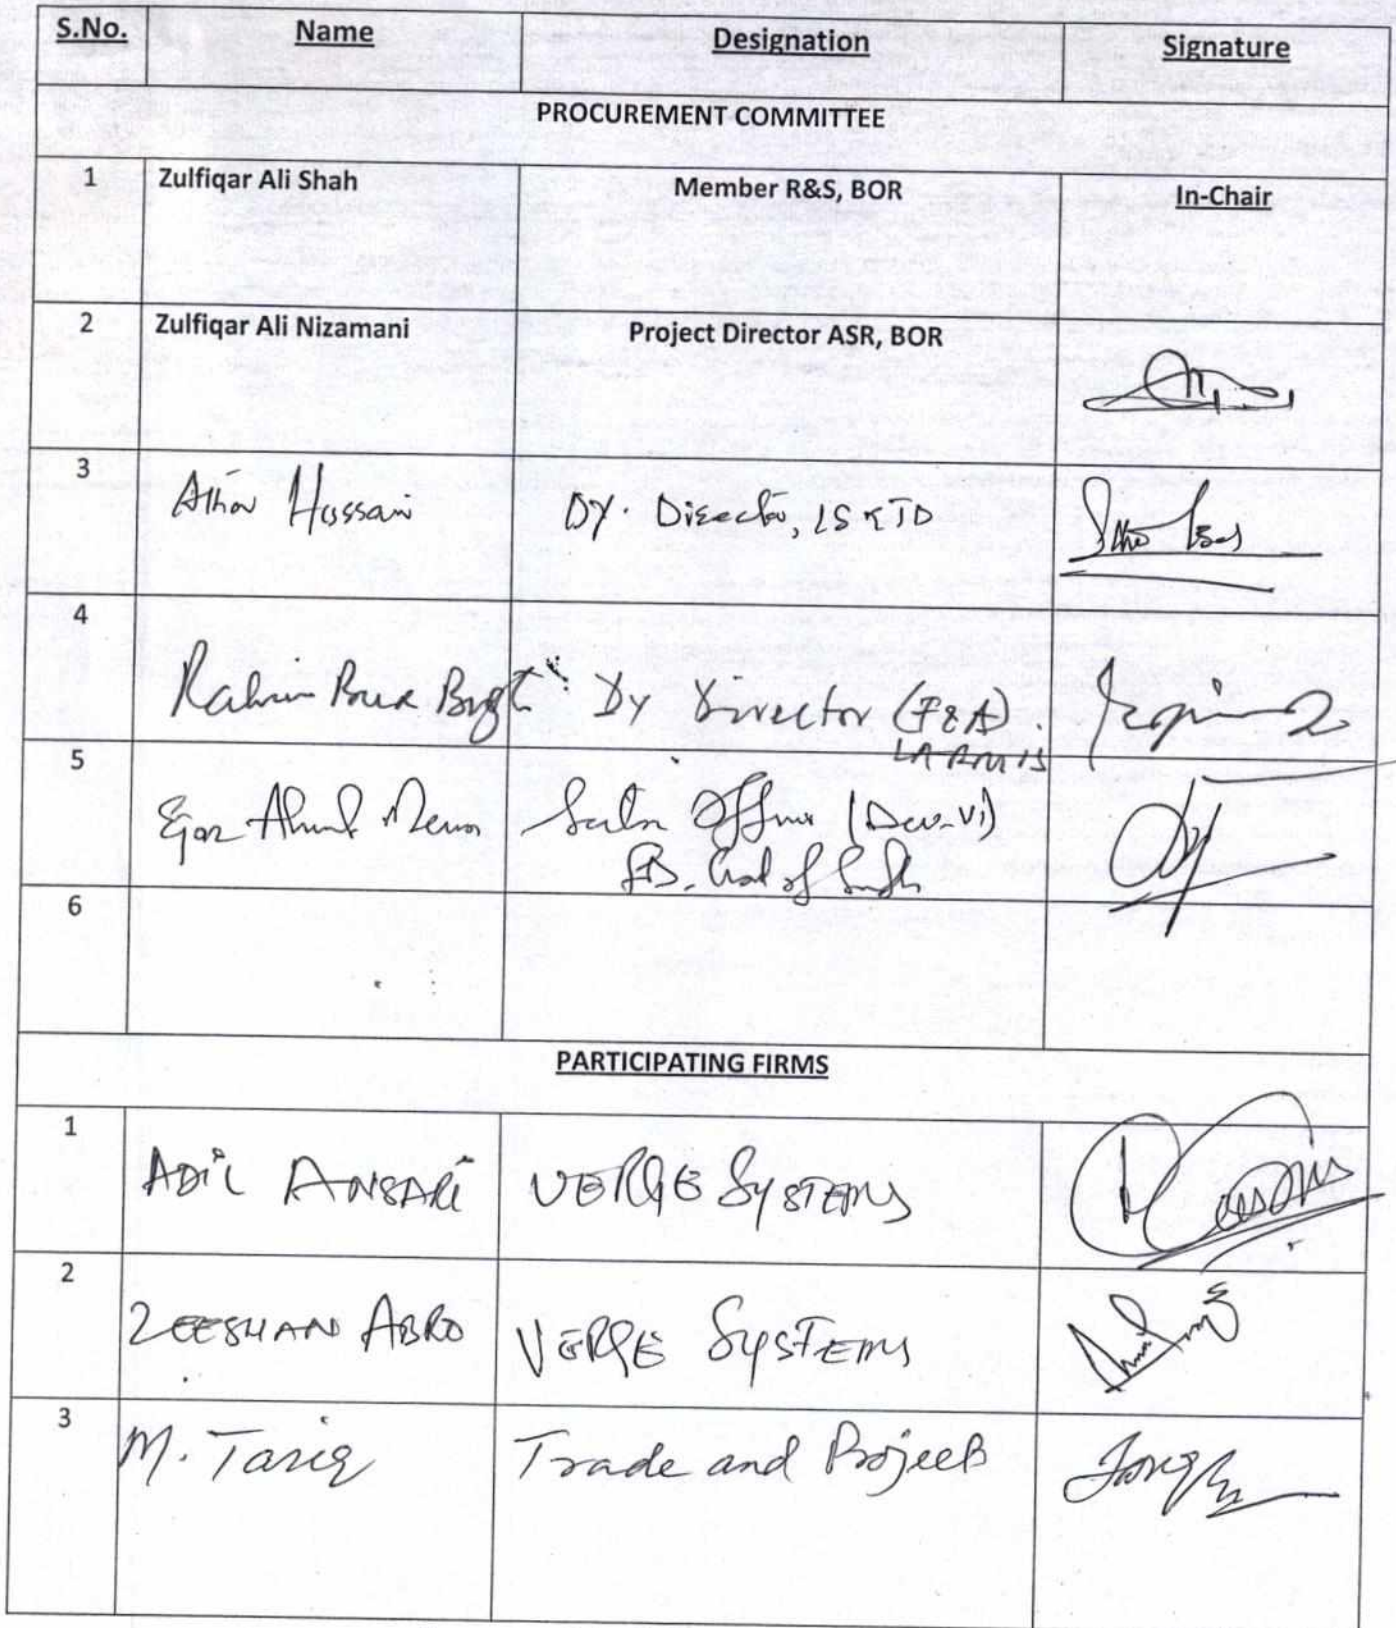 S.No. Name Designation Signature
PROCUREMENT COMMITTEE
1 Zulfiqar Ali Shah Member R&S, BOR In-Chair
2 Zulfiqar Ali Nizamani Project Director ASR, BOR
3 Hussain Dy. Director,
4 Rahim Bux Dy Director (F&A).
LARMIS
5 Ahmed Memon Officer (Dev-VI)
6
PARTICIPATING FIRMS
1 ADIL ANSARI VERGE SYSTEMS
2 ZEESHAN ABRO VERGE SYSTEMS
3 M. Tariq Trade and Projects